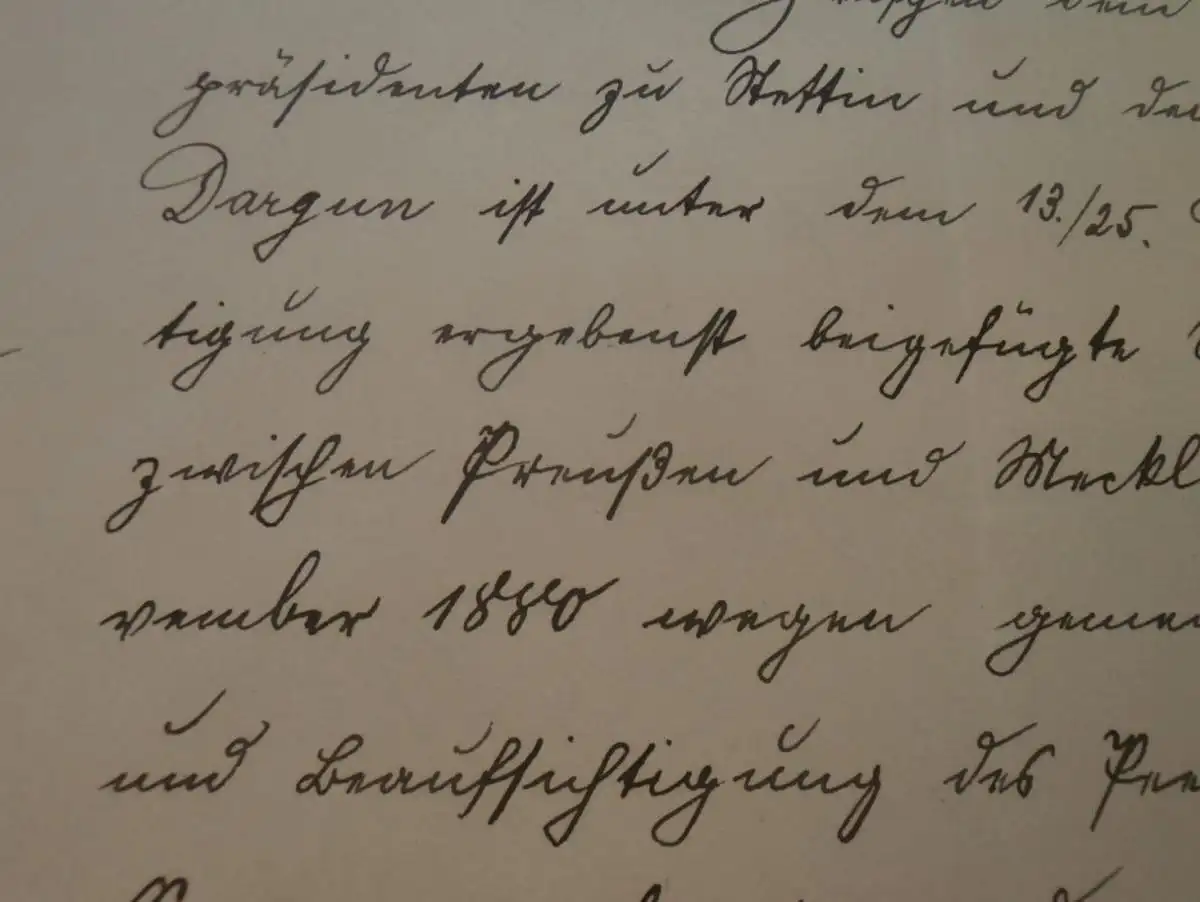 dem
präsidenten zu Stettin und
Dargun ist unter dem 13./25.
tigung ergebenst beigefügte
zwischen Preußen und Meckl
vember 1880 wegen gemei
und Beaufsichtigung des Pee